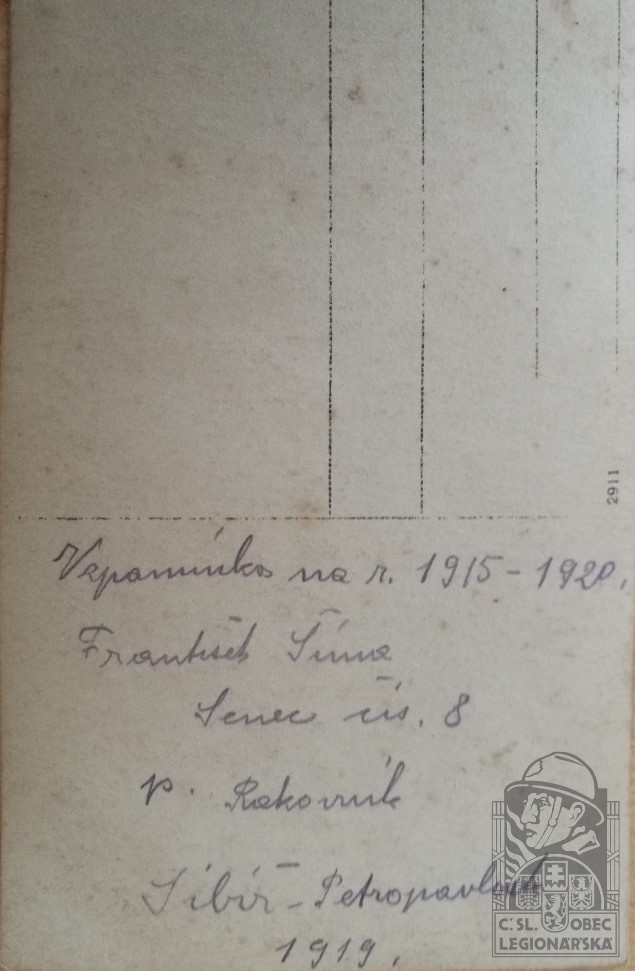 2911
Vzpomínka na r. 1915 - 1920.
František Šíma
Senec čís. 8
p. Rakovník
Sibiř - Petropavlovsk
1919.
Č:SL. OBEC
LEGIONÁŘSKÁ